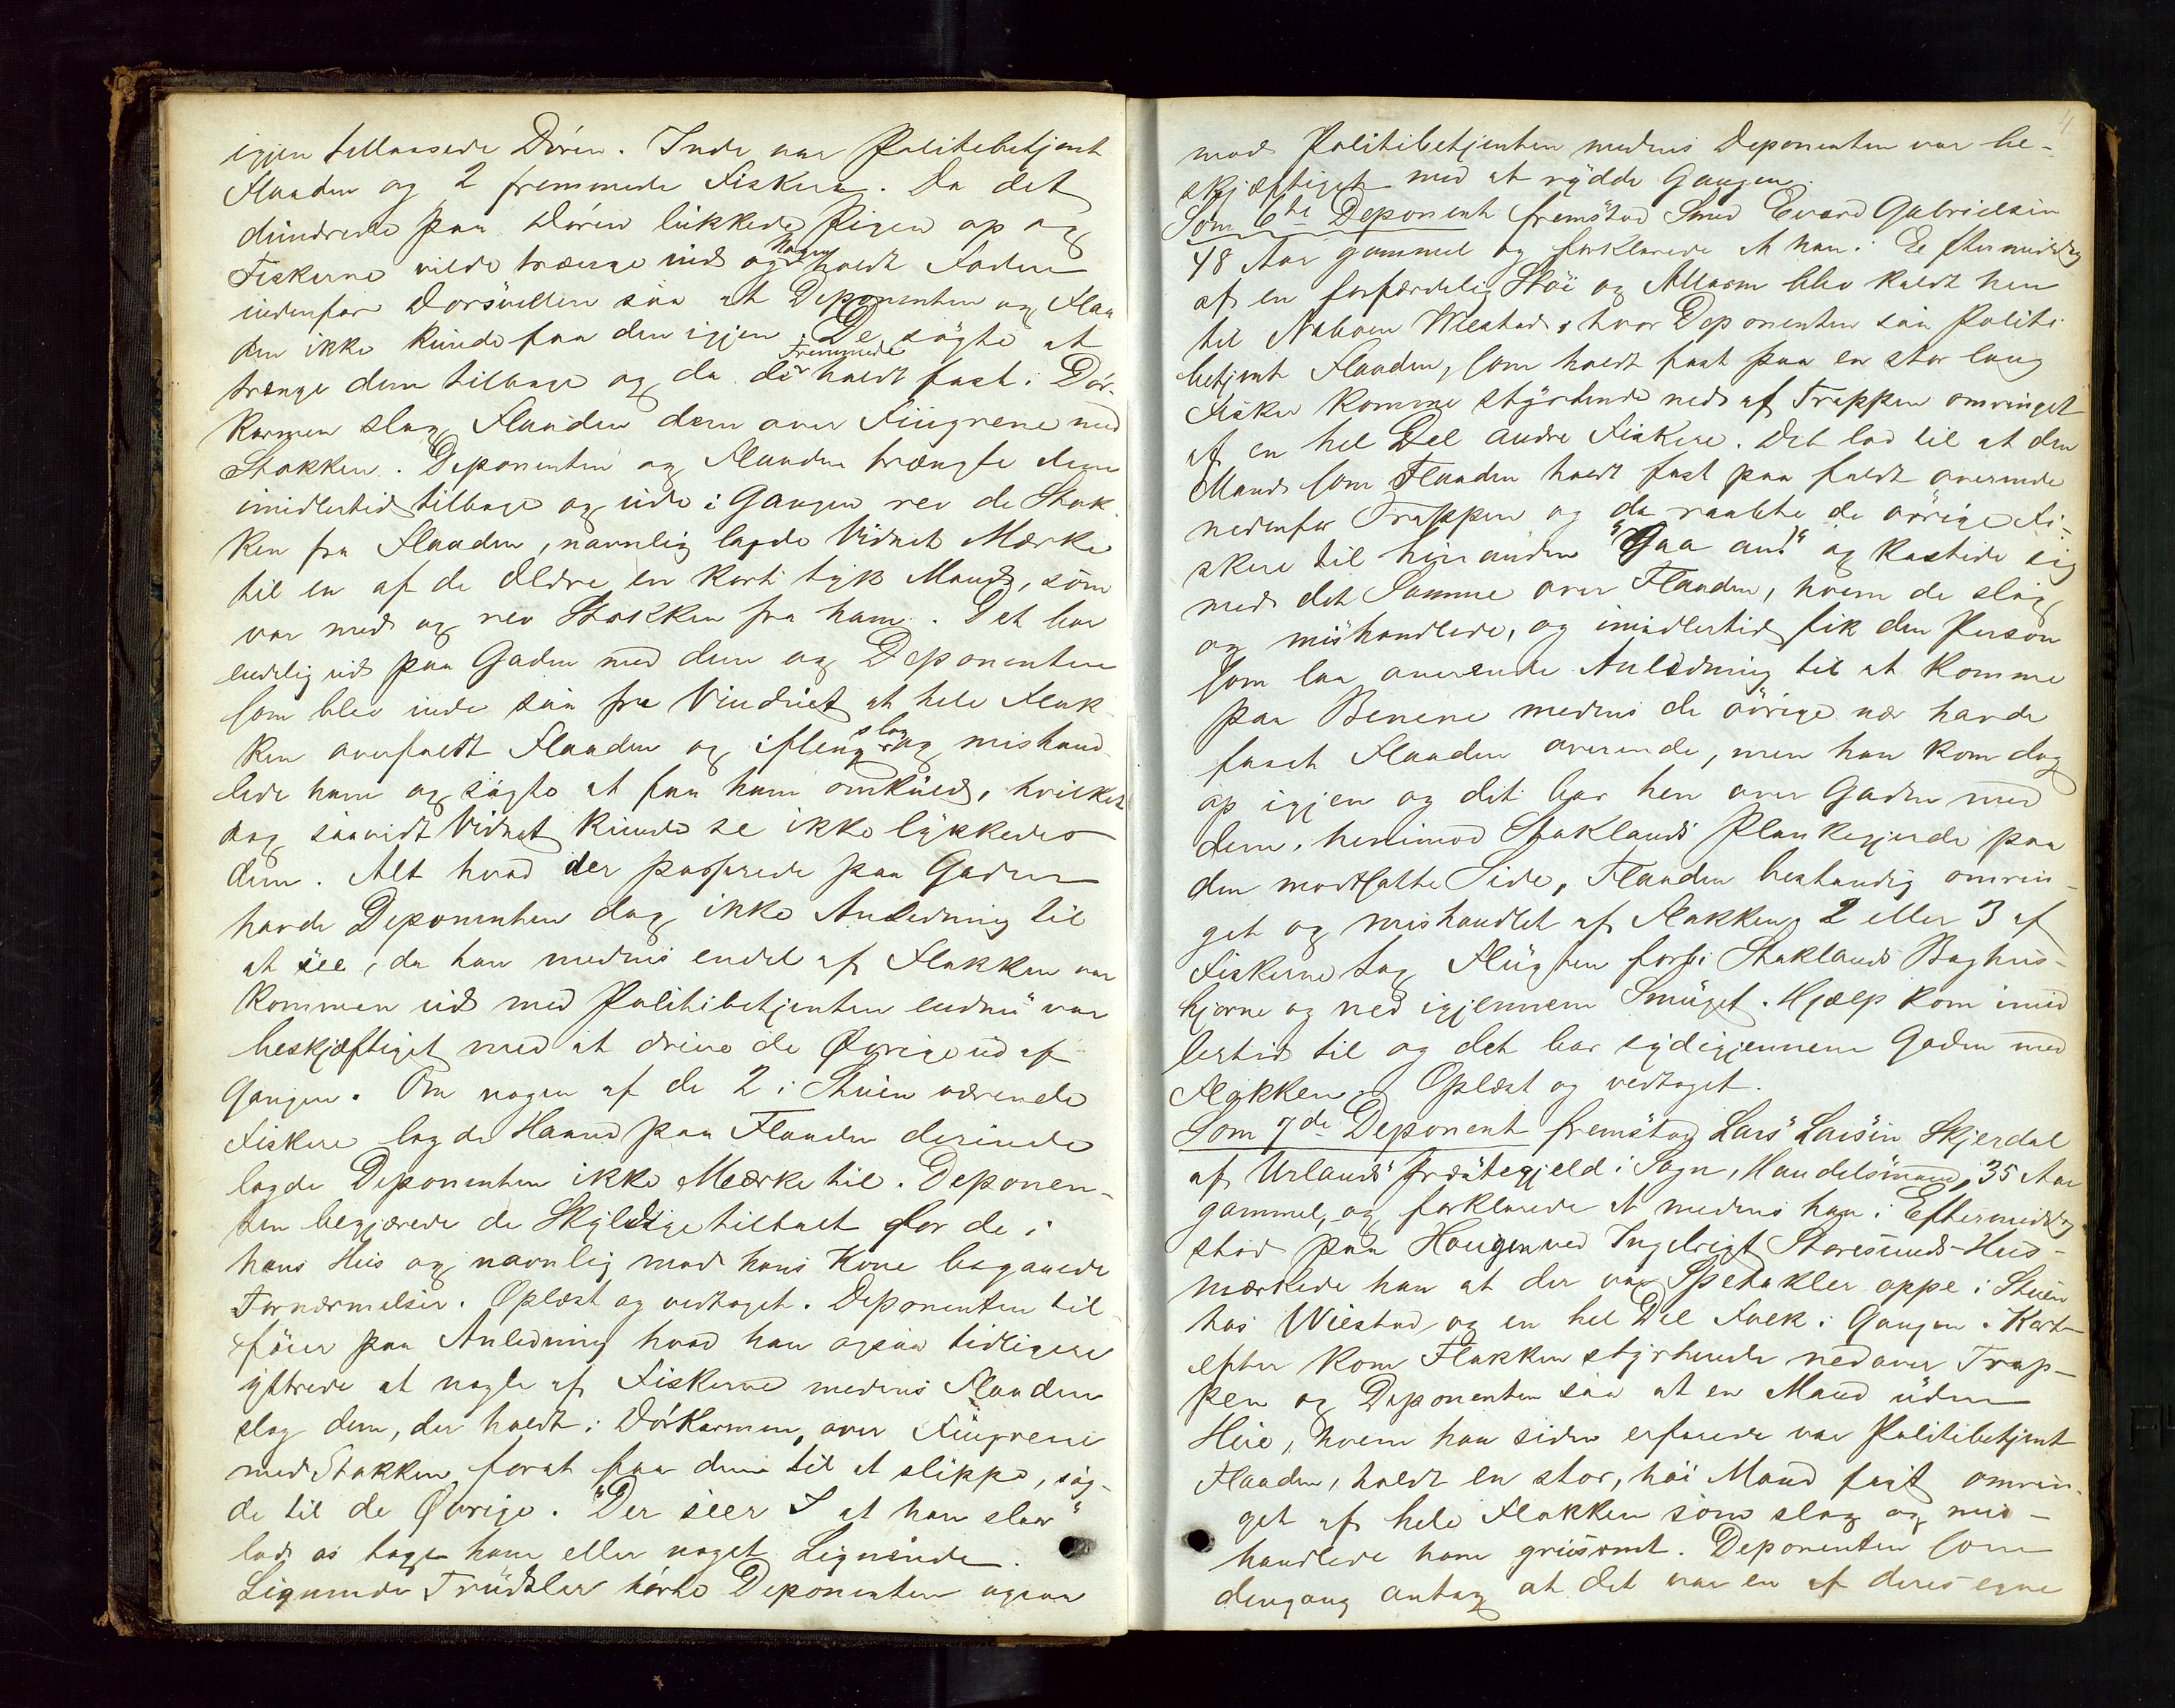 igjen tillaasede Døren. Inde var Politibetjent
Flaaden og 2 fremmede Fiskere. Da det
dundrede paa Døren lukkede Pigen op og
Fiskerne vilde trænge ind og Nogen holdt Foden
indenfor Dørsvillen saa at Deponenten og Flaa
den ikke kunde faa den igjen. De søgte at
trænge dem tilbage og da de Fremmede holdt fast i Dør-
karmen slog Flaaden dem over Fingrene med
Stokken. Deponenten og Flaaden trængte dem
imidlertid tilbage og ude i Gangen rev de Stok
ken fra Flaaden, navnlig lagde Vidnet Mærke
til en af de Ældre en kort tyk Mand, som
var med og rev Stokken fra ham. Det bar
endelig ud paa Gaden med dem og Deponenten
som blev inde saa fra Vinduet at hele Flok
ken overfaldt Flaaden og i fleng slog og mishand
lede ham og søgte at faa ham omkuld, hvilket
dog saavidt Vidnet kunde se ikke lykkedes
dem. Alt hvad der passerede paa Gaden
havde Deponenten dog ikke Anledning til
at see, da han medens endel af Flokken var
kommen ud med Politibetjenten endnu var
beskjæftiget med at drive de Øvrige ud af
Gangen. Om nogen af de 2 i Stuen værende
Fiskere lagde Haand paa Flaaden derinde
lagde Deponenten ikke Mærke til. Deponen-
ten begjærede de Skyldige tiltalt for de i
hans Hus og navnlig mod hans Kone begaaede
Fornærmelser. Oplæst og vedtaget. Deponenten til
føier paa Anledning hvad han ogsaa tidligere
yttrede at nogle af Fiskerne medens Flaaden
slog dem, der holdt i Dørkarmen, over Fingrene
med Stokken forat faa dem til at slippe, sag-
de til de Øvrige. "Der seer I at han slaar"
lad os tage ham eller noget Lignende.
Lignende Trudsler hørte Deponenten ogsaa
4
mod Politibetjenten medens Deponenten var be-
skjæftiget med at rydde Gangen.
Som 6te Deponent fremstod Smed Evard Gabrielsen
48 Aar gammel og forklarede at han i Eftermiddag
af en forfærdelig Støi og Allarm blev kaldt hen
til Naboen Wiestad, hvor Deponenten saa Politi
betjent Flaaden, som holdt fast paa en stor lang
Fisker komme styrtende ned af Trappen omringet
af en hel Del andre Fiskere. Det lod til at den
Mand som Flaaden holdt fast paa faldt overende
nedenfor Trappen og da raabte de øvrige Fi-
skere til hinanden "Gaa an!" og kastede sig
med det Samme over Flaaden, hvem de slog
og mishandlede, og imidlertid fik den Person
som laa overende Anledning til at komme
paa Benene medens de øvrige nær havde
faaet Flaaden overende, men han kom dog
op igjen og det bar hen over Gaden med
dem, henimod Stoklands Plankegjerde paa
den modsatte Side, Flaaden bestandig omrin-
get og mishandlet af Flokken. 2 eller 3 af
Fiskerne tog Flugten forbi Stoklands Baghus-
hjørne og ned igjennem Smuget. Hjælp kom imid
lertid til og det bar sydigjennem Gaden med
Flokken. Oplæst og vedtaget.
Som 7de Deponent fremstod Lars Larsen Skjerdal
af Urlands Præstegjeld i Sogn, Handelsmand, 35 Aar
gammel, og forklarede at medens han i Eftermiddag
stod paa Haugen ved Ingebrigt Storesunds Hus-
mærkede han at der var Spetakler oppe i Stuen
hos Wiestad og en hel Del Folk i Gangen. Kort-
efter kom Flokken styrtende ned over Trap-
pen og Deponenten saa at en Mand uden
Hue, hvem han siden erfarede var Politibetjent
Flaaden, holdt en stor, høi Mand fast omrin-
get af hele Flokken som slog og mis-
handlede ham grusomt. Deponenten som
dengang antog at det var en af deres egne